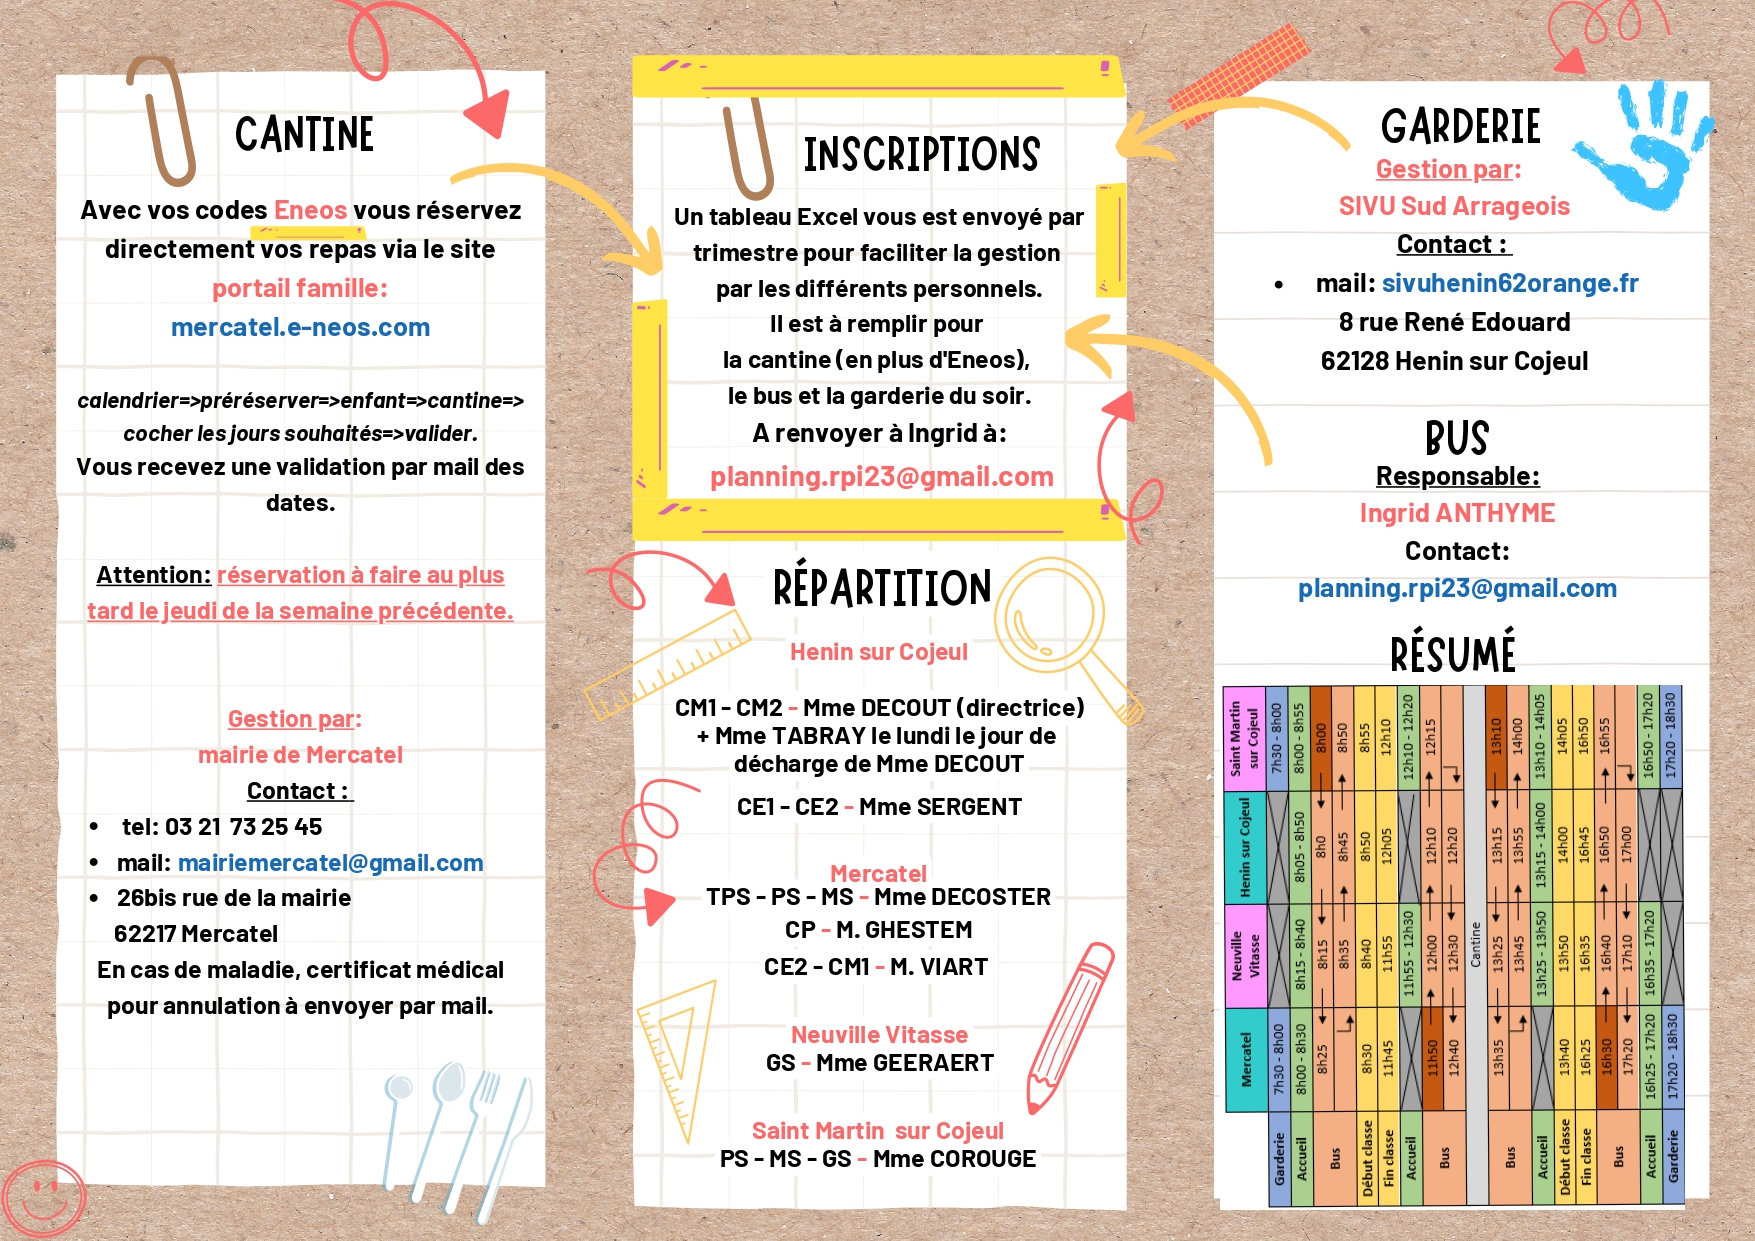 CANTINE
Avec vos codes Eneos vous réservez
directement vos repas via le site
portail famille:
mercatel.e-neos.com
calendrier=>préréserver=>enfant=>cantine=>
cocher les jours souhaités=>valider.
Vous recevez une validation par mail des
dates.
Attention: réservation à faire au plus
tard le jeudi de la semaine précédente.
Gestion par:
mairie de Mercatel
Contact :
• tel: 03 21 73 25 45
• mail: mairiemercatel@gmail.com
• 26bis rue de la mairie
62217 Mercatel
En cas de maladie, certificat médical
pour annulation à envoyer par mail.
INSCRIPTIONS
Un tableau Excel vous est envoyé par
trimestre pour faciliter la gestion
par les différents personnels.
Il est à remplir pour
la cantine (en plus d'Eneos),
le bus et la garderie du soir.
A renvoyer à Ingrid à:
planning.rpi23@gmail.com
RÉPARTITION
Henin sur Cojeul
CM1 - CM2 - Mme DECOUT (directrice)
+ Mme TABRAY le lundi le jour de
décharge de Mme DECOUT
CE1 - CE2 - Mme SERGENT
Mercatel
TPS - PS - MS - Mme DECOSTER
CP - M. GHESTEM
CE2 - CM1 - M. VIART
Neuville Vitasse
GS - Mme GEERAERT
Saint Martin sur Cojeul
PS - MS - GS - Mme COROUGE
GARDERIE
Gestion par:
SIVU Sud Arrageois
Contact :
• mail: sivuhenin62orange.fr
8 rue René Edouard
62128 Henin sur Cojeul
BUS
Responsable:
Ingrid ANTHYME
Contact:
planning.rpi23@gmail.com
RÉSUMÉ
Mercatel Neuville Vitasse Henin sur Cojeul Saint Martin sur Cojeul
Garderie 7h30 - 8h00 7h30 - 8h00
Accueil 8h00 - 8h30 8h15 - 8h40 8h05 - 8h50 8h00 - 8h55
Bus 8h25 8h15 8h0 8h00
8h35 8h45 8h50
Début classe 8h30 8h40 8h50 8h55
Fin classe 11h45 11h55 12h05 12h10
Accueil 11h55 - 12h30 12h10 - 12h20
Bus 11h50 12h00 12h10 12h15
12h40 12h30 12h20
Cantine
Bus 13h35 13h25 13h15 13h10
13h45 13h55 14h00
Accueil 13h25 - 13h50 13h15 - 14h00 13h10 - 14h05
Début classe 13h40 13h50 14h00 14h05
Fin classe 16h25 16h35 16h45 16h50
Bus 16h30 16h40 16h50 16h55
17h20 17h10 17h00
Accueil 16h25 - 17h20 16h35 - 17h20 16h50 - 17h20
Garderie 17h20 - 18h30 17h20 - 18h30